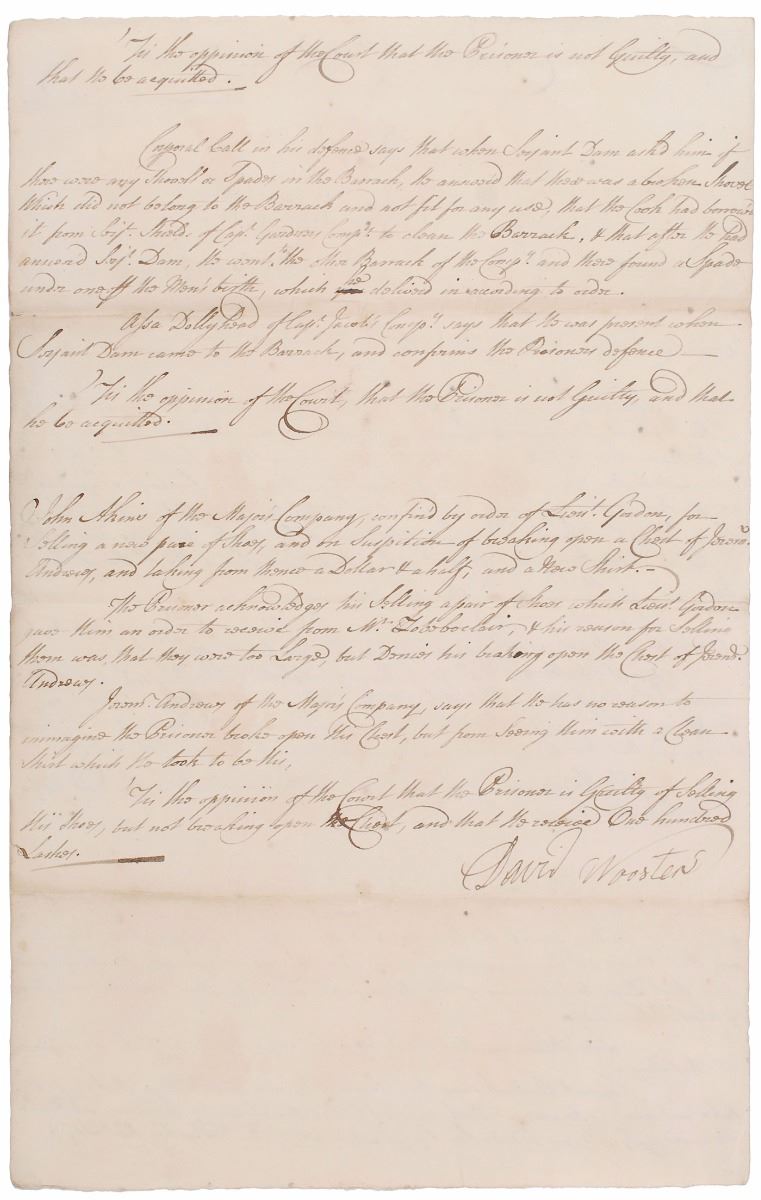 'Tis the oppinion of the Court that the Prisoner is not Guilty, and
that he be acquitted.
Corporal Call in his defence says that when Serjant Dam ask'd him if
there were any Shovells or Spades in the Barrack, he answerd that there was a broken Shovel
which did not belong to the Barrack and not fit for any use, that the Cook had borrow'd
it from Serjt. Sheds, of Capt. Gardners Compy. to clean the Barrack, & that after he had
answer'd Serjt. Dam, he went to the other Barrack of the Compy. and there found a Spade
under one of the Men's birth, which he deliverd in according to order.
Assa Dollyhead of Capt. Jacobs Compy. says that he was present when
Serjant Dam came to the Barrack, and confirms the Prisoners defence
'Tis the oppinion of the Court, that the Prisoner is not Guilty, and that
he be acquitted.
John Akins of the Majors Company, confin'd by order of Lieut. Gordon, for
Selling a new pair of Shoes, and on Suspition of breaking open a Chest of Jeremh.
Andrews, and taking from thence a Dollar & a half, and a New Shirt.
The Prisoner acknowledges his Selling a pair of Shoes which Lieut. Gordon
gave him an order to receive from Mr. & his reason for Selling
them was, that they were too Large, but Denies his braking open the Chest of Jeremh.
Andrews.
Jeremh. Andrews of the Majors Company, says that he has no reason to
immagine the Prisoner broke open his Chest, but from Seeing him with a Clean
Shirt which he took to be his,
'Tis the oppinion of the Court that the Prisoner is Guilty of Selling
his Shoes, but not breaking open the Chest, and that he receive One hundred
Lashes.
David Wooster